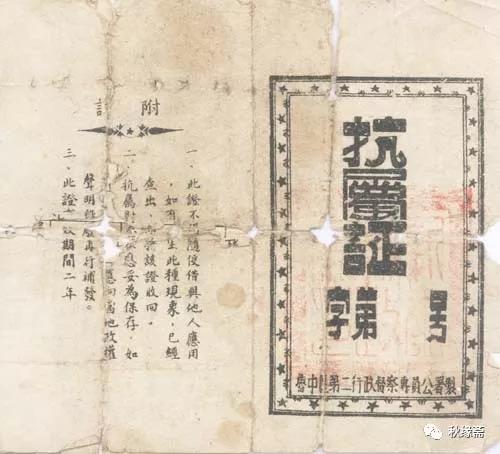 抗屬証
字第 号
魯中區第二行政督察專員公署製
附註
一、此證不 隨便借與他人應用
，如有 生此種現象，已經
查出，即將該證收回。
二、抗屬對 應妥為保存，如
應向當地政權
聲明 廢再行補發。
三、此證 效期間二年
秋缘斋